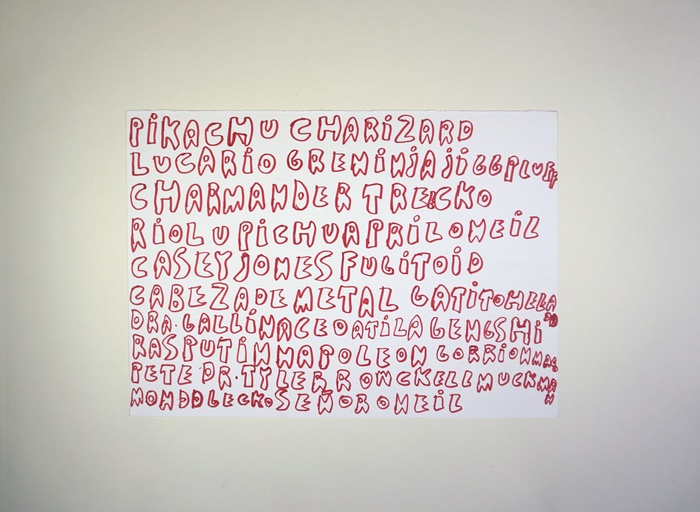 PiKACHU CHARiZARD
LUCARiO GRENiNJA jiGGPLUFF
CHARMANDER TREECKO
RiOLU PiCHU APRIL ONEiL
CASEY JONES FUGiTOiD
CABEZA DE METAL GATiTO HELADO
DRA. GALLiNACEO ATiLA GENGSHi
RASPUTiN NAPOLEON GORRiON
PETE DR. TYLER RONCKELL MUCKMAN
MONDO GECKO SEÑOR ONEiL